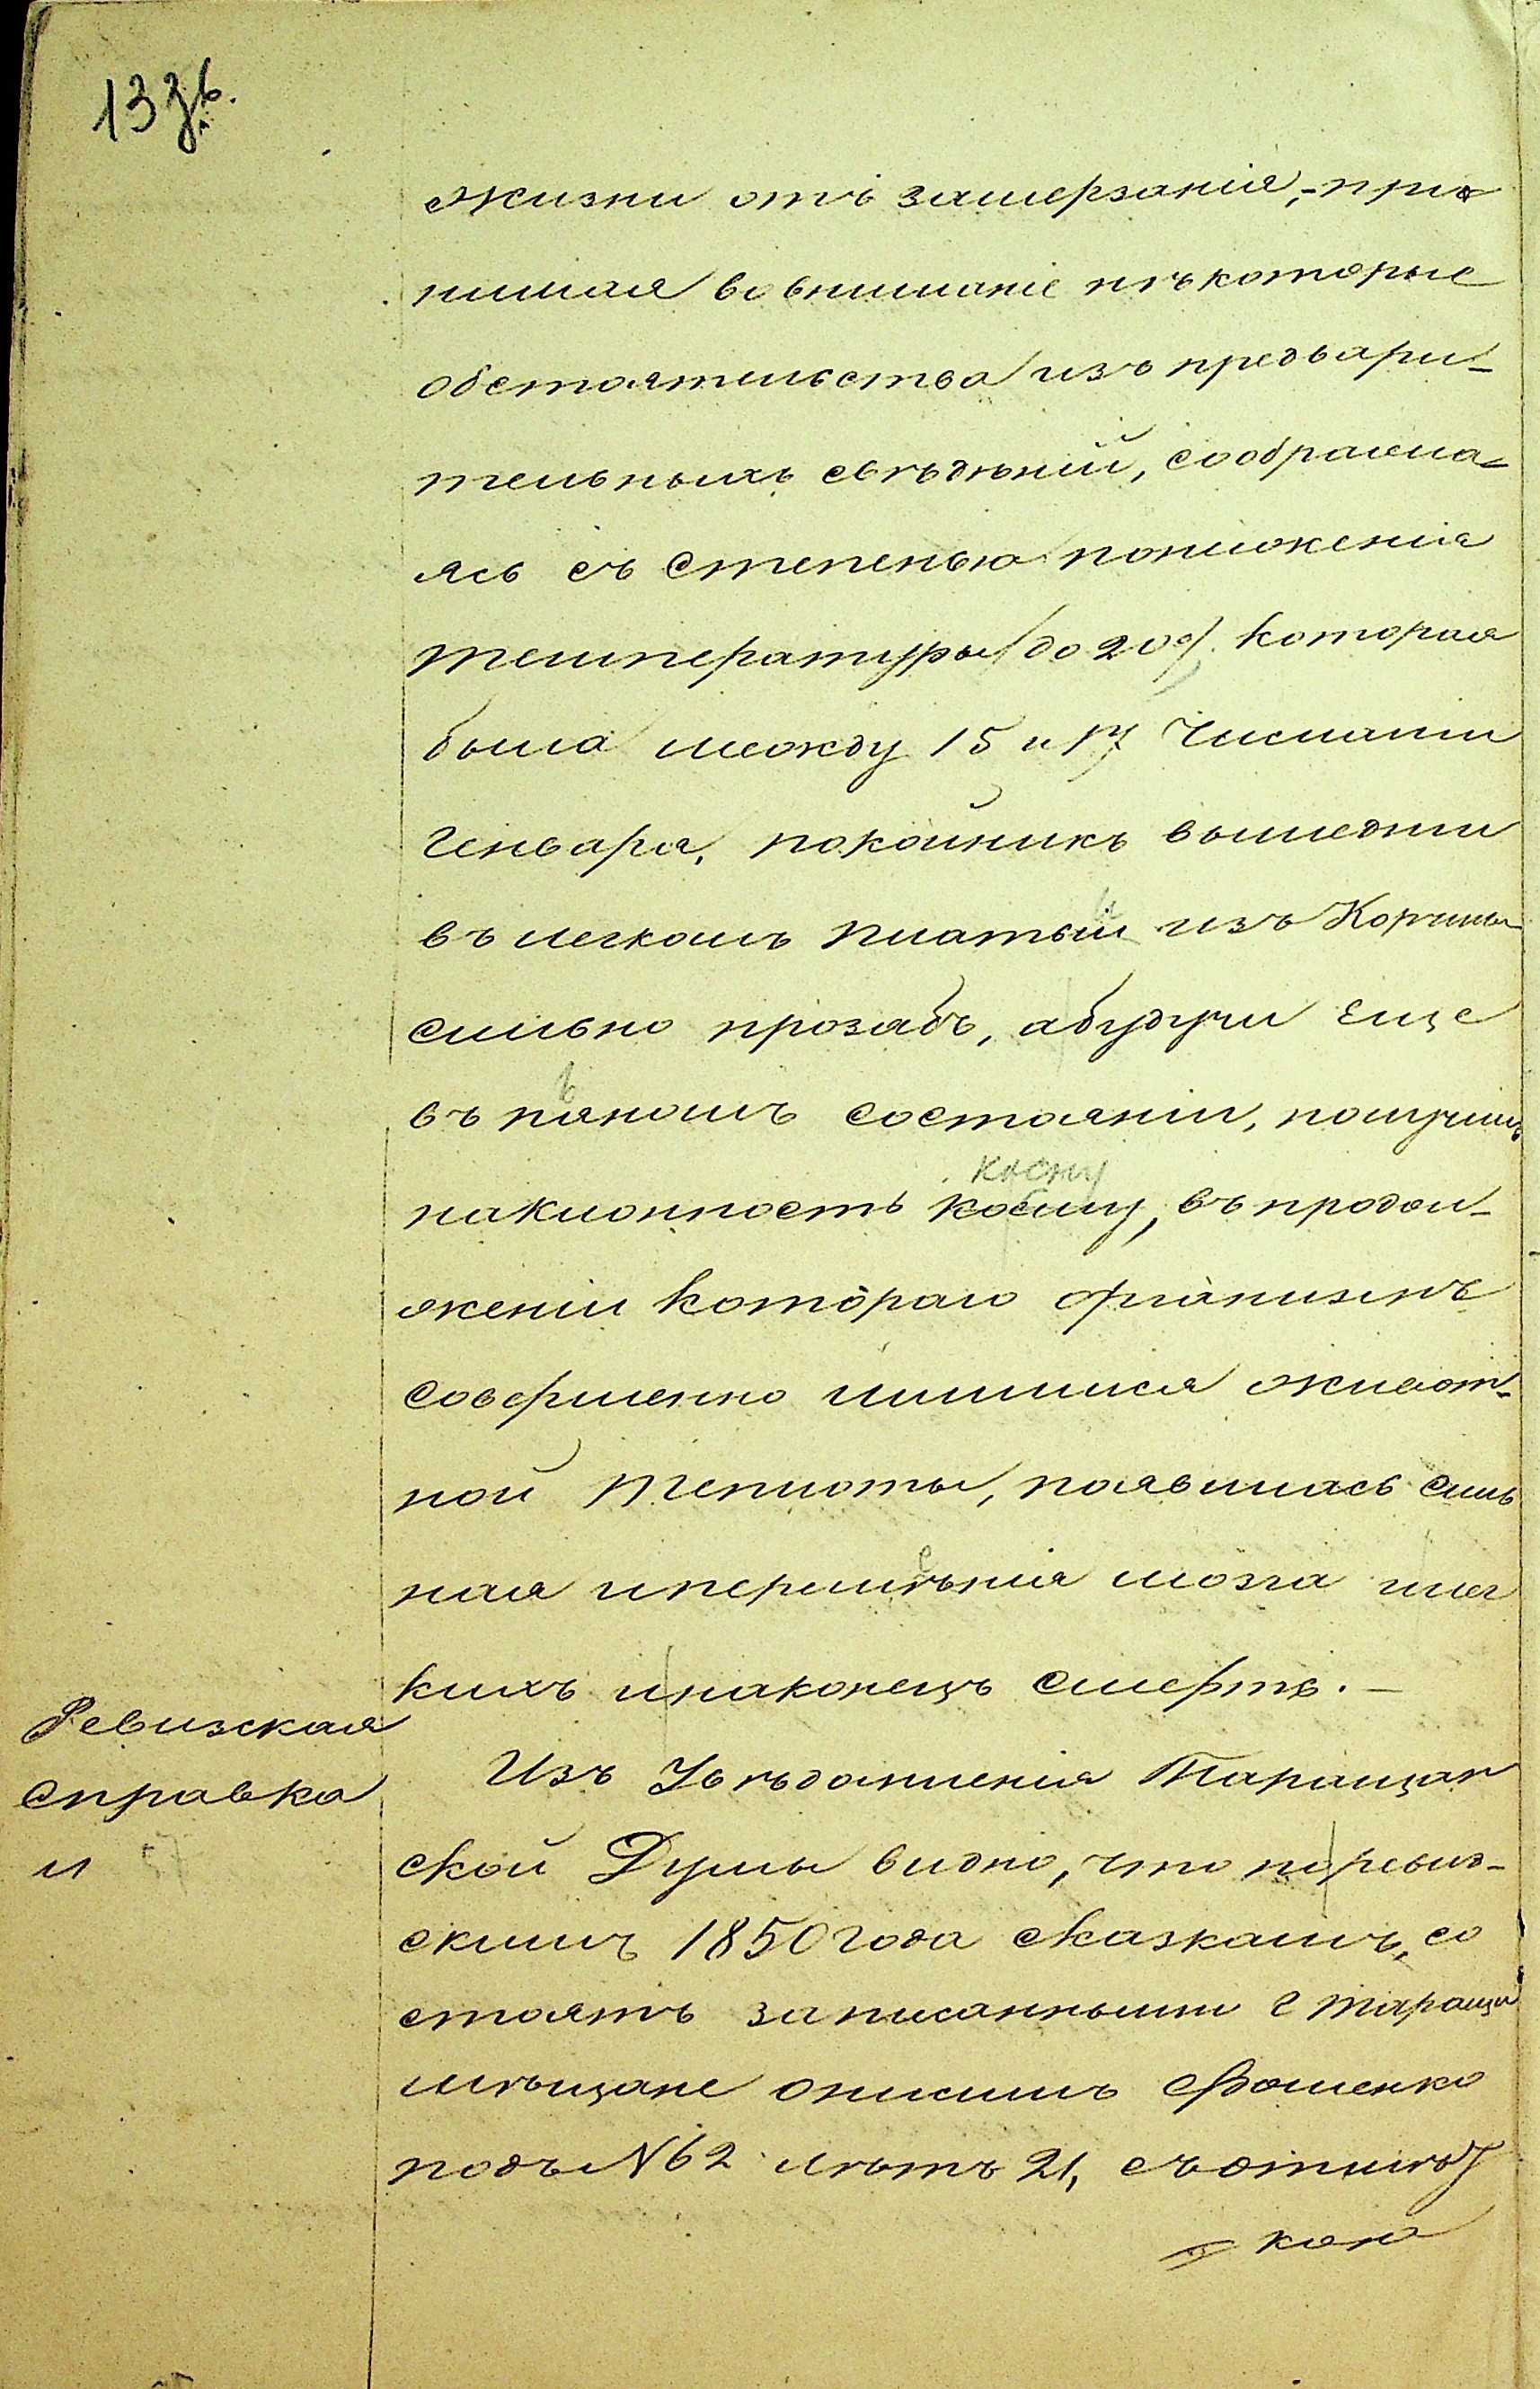 13 зв.
жизни отъ замерзанія, - при
нимая вовниманіе нѣкоторые
обстоятельства изъ предвари-
тельныхъ свѣдѣній, сообража-
ясь съ степенью пониженія
температуры (до 20°), которая
была между 15 и 17 Числами
Генваря, покойникъ вышедши
въ легкомъ платьи изъ Корчмы
сильно прозябъ, абудучи еще
въ пяномъ состояніи, получилъ
ь
наклонность косну, въ продол-
ко сну
женіи котораго организмъ
совершенно лишился живот-
ной теплоты, появилась силь
ная иперемѣнія мозга илег
е
кихъ инаконецъ смерть. —
Ревизская
справка
и
Изъ Увѣдомленія Таращан
ской Думы видно, что поревиз-
скимъ 1850 года сказкамъ, со
стоятъ записанными г Таращи
мѣщане Онисимъ Фоменко
подъ N 62 лѣтъ 21, съ отмѣт
кою